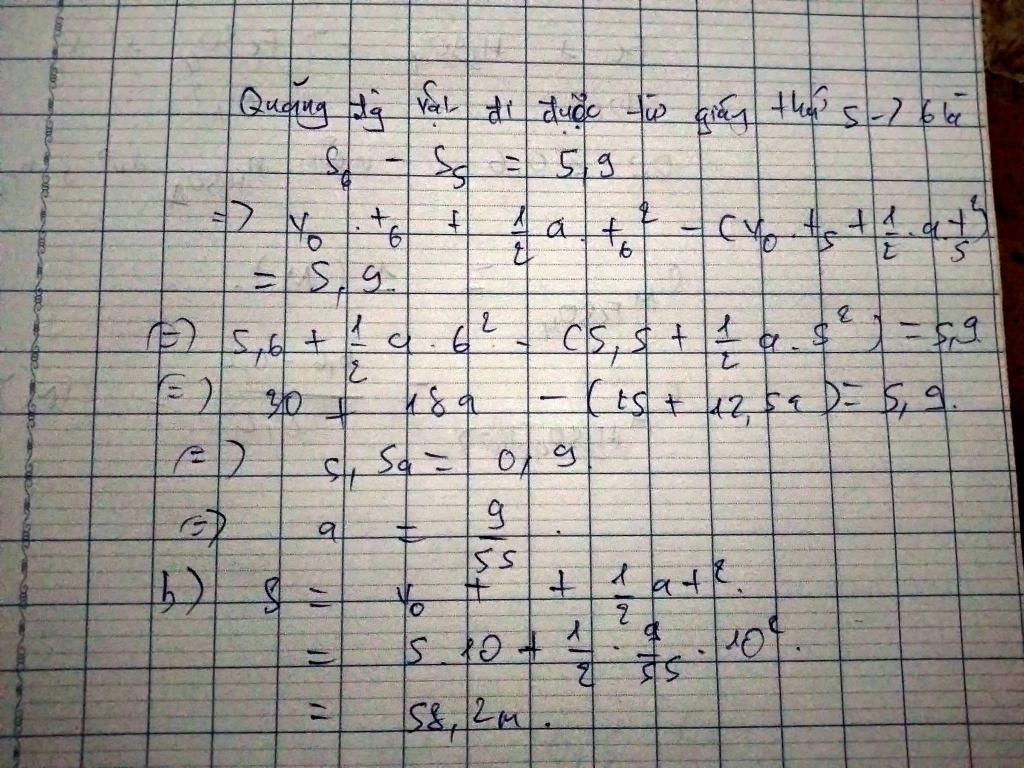 Quãng đg vật đi được từ giây thứ 5 -> 6 là
S₆ - S₅ = 5,9
=> v₀.t₆ + 1/2 a.t₆² - (v₀.t₅ + 1/2.a t₅²)
= 5,9.
(=) 5,6 + 1/2 a.6² - (5,5 + 1/2 a.5²) = 5,9
(=) 30 + 18a - (25 + 12,5a) = 5,9.
(=) 5,5a = 0,9
(=) a = 9/55.
b) S = v₀ t + 1/2 a t².
= 5.10 + 1/2 . 9/55 . 10².
= 58,2m.